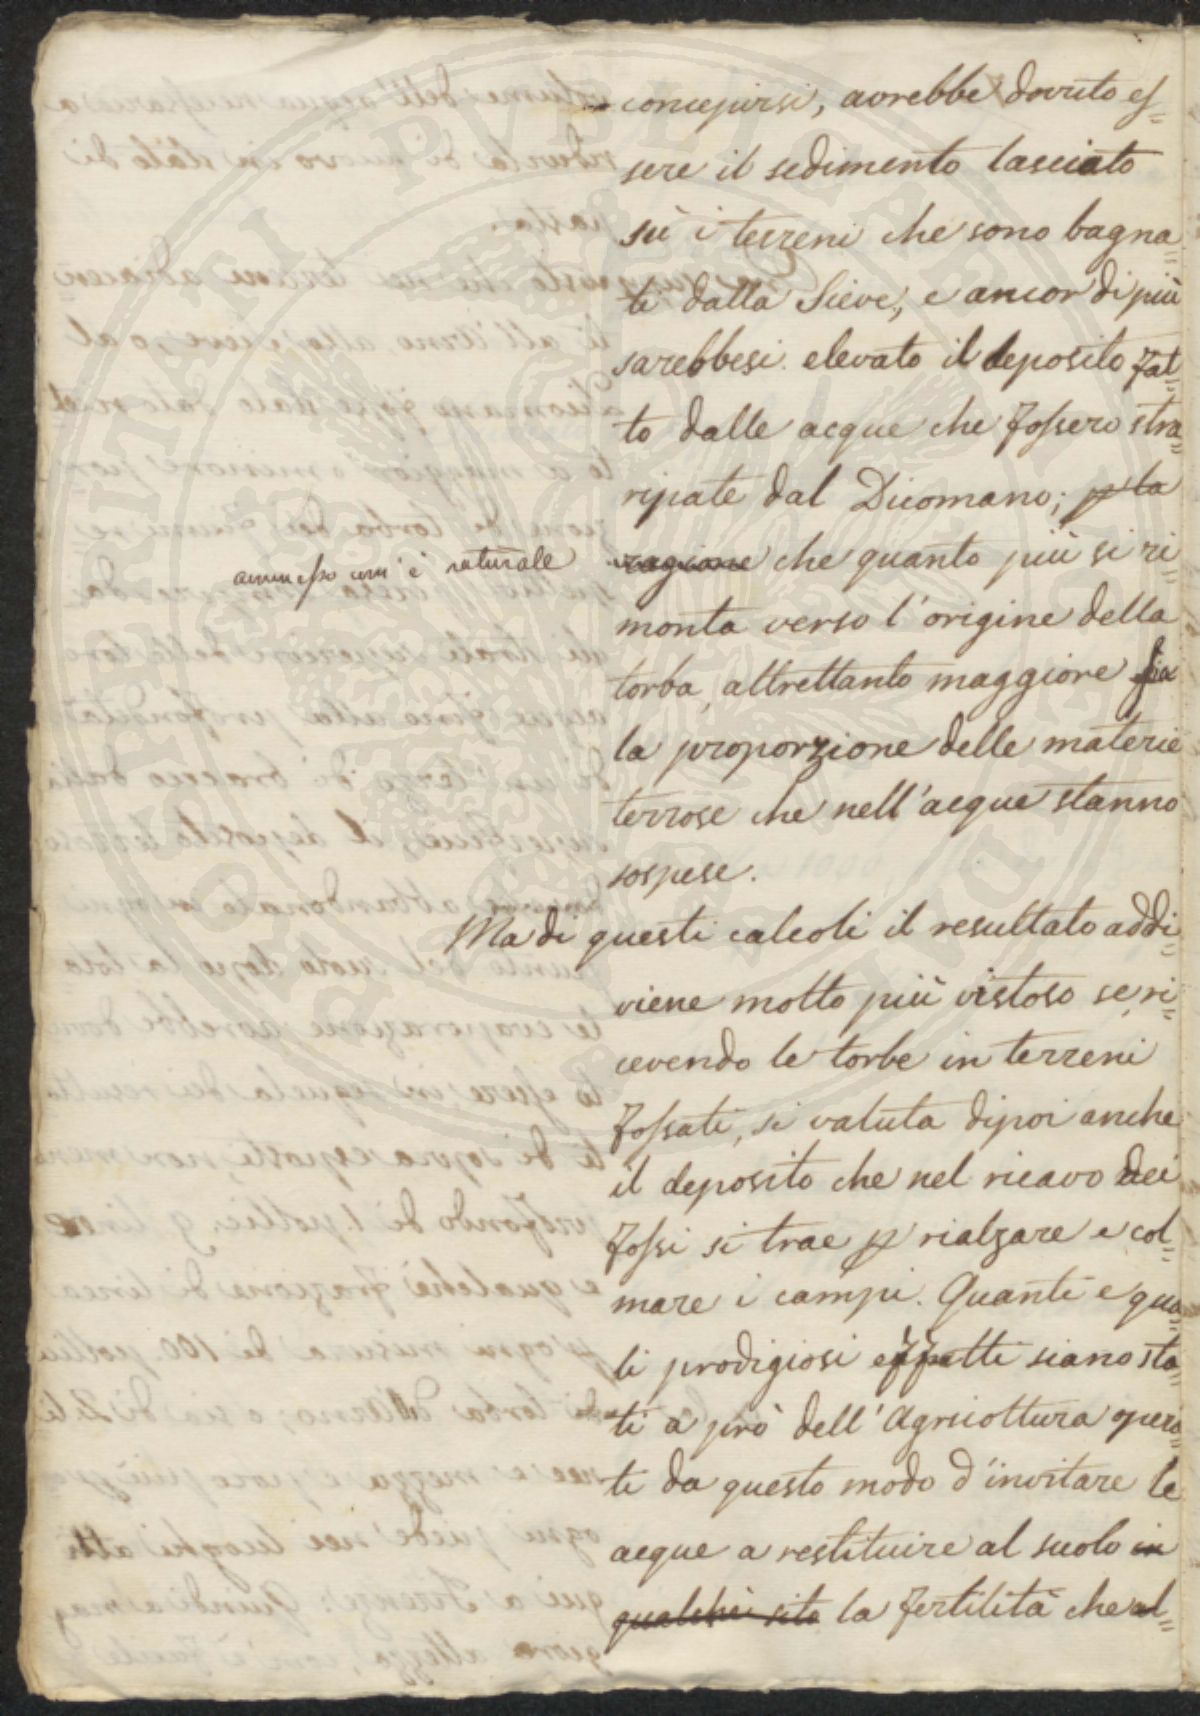 concepirsi, avrebbe dovuto es=
sere il sedimento lasciato
sù i terreni che sono bagna=
ti dalla Sieve, e ancor di più
sarebbesi elevato il deposito fat=
to dalle acque che fossero stra=
ripate dal Dicomano; p la
ragione che quanto più si ri=
ammesso com'è naturale
monta verso l'origine della
torba, altrettanto maggiore sia
la proporzione delle materie
terrose che nell'acque stanno
sospese.
Ma di questi calcoli il resultato addi=
viene molto più vistoso se, ri=
cevendo le torbe in terreni
fossati, si valuta dipoi anche
il deposito che nel ricavo dei
fossi si trae p rialzare e col=
mare i campi. Quanti e qua=
li prodigiosi effetti siano sta=
ti a prò dell'Agricoltura opera=
ti da questo modo d'invitare le
acque a restituire al suolo in
qualche sito la fertilità che al=